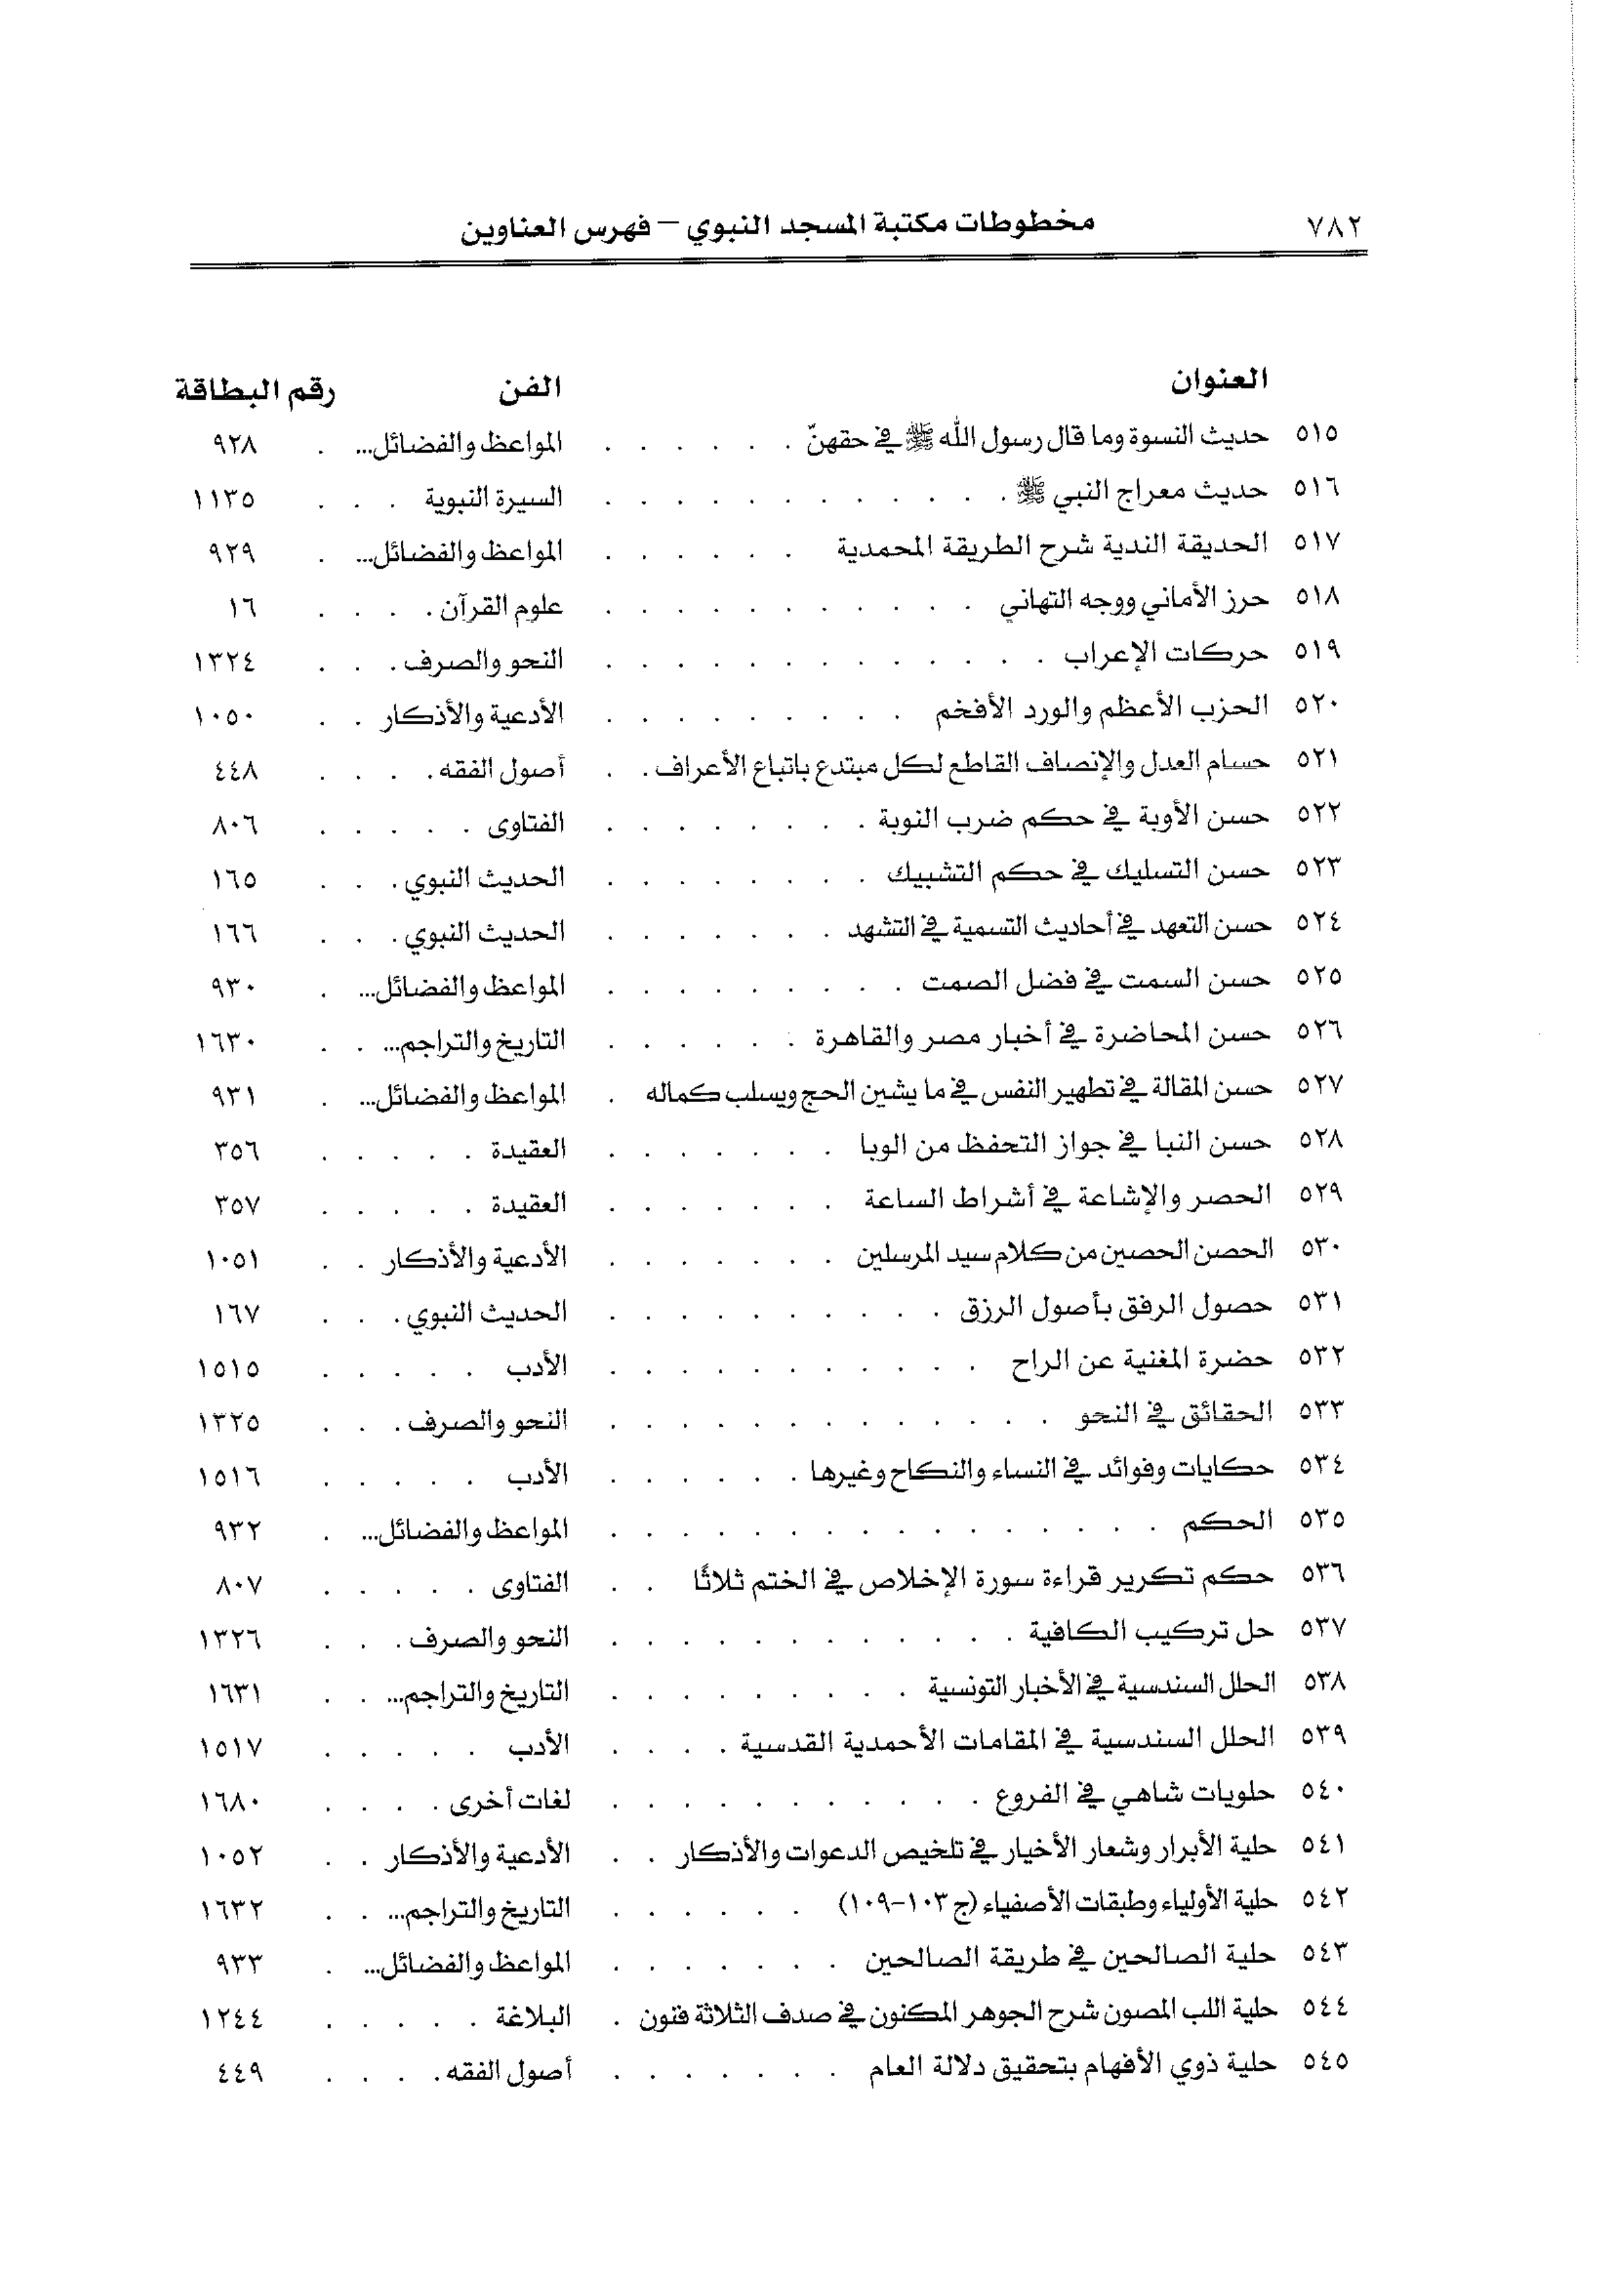 ٧٨٢ مخطوطات مكتبة المسجد النبوي – فهرس العناوين
العنوان الفن رقم البطاقة
٥١٥ حديث النسوة وما قال رسول الله ﷺ في حقهنّ . . . . . . المواعظ والفضائل... . ٩٢٨
٥١٦ حديث معراج النبي ﷺ . . . . . . . . . . . . السيرة النبوية . . . ١١٣٥
٥١٧ الحديقة الندية شرح الطريقة المحمدية . . . . . . المواعظ والفضائل... . ٩٢٩
٥١٨ حرز الأماني ووجه التهاني . . . . . . . . . . . علوم القرآن . . . . ١٦
٥١٩ حركات الإعراب . . . . . . . . . . . . . النحو والصرف . . . ١٣٢٤
٥٢٠ الحزب الأعظم والورد الأفخم . . . . . . . . . الأدعية والأذكار . . ١٠٥٠
٥٢١ حسام العدل والإنصاف القاطع لكل مبتدع باتباع الأعراف . . أصول الفقه . . . . ٤٤٨
٥٢٢ حسن الأوبة في حكم ضرب النوبة . . . . . . . . الفتاوى . . . . . ٨٠٦
٥٢٣ حسن التسليك في حكم التشبيك . . . . . . . . الحديث النبوي . . . ١٦٥
٥٢٤ حسن التعهد في أحاديث التسمية في التشهد . . . . . . . الحديث النبوي . . . ١٦٦
٥٢٥ حسن السمت في فضل الصمت . . . . . . . . . المواعظ والفضائل... . ٩٣٠
٥٢٦ حسن المحاضرة في أخبار مصر والقاهرة . . . . . . التاريخ والتراجم... . . ١٦٣٠
٥٢٧ حسن المقالة في تطهير النفس في ما يشين الحج ويسلب كماله . المواعظ والفضائل... . ٩٣١
٥٢٨ حسن النبا في جواز التحفظ من الوبا . . . . . . . العقيدة . . . . . ٣٥٦
٥٢٩ الحصر والإشاعة في أشراط الساعة . . . . . . . العقيدة . . . . . ٣٥٧
٥٣٠ الحصن الحصين من كلام سيد المرسلين . . . . . . . الأدعية والأذكار . . ١٠٥١
٥٣١ حصول الرفق بأصول الرزق . . . . . . . . . . الحديث النبوي . . . ١٦٧
٥٣٢ حضرة المغنية عن الراح . . . . . . . . . . . الأدب . . . . . ١٥١٥
٥٣٣ الحقائق في النحو . . . . . . . . . . . . . النحو والصرف . . . ١٣٢٥
٥٣٤ حكايات وفوائد في النساء والنكاح وغيرها . . . . . . الأدب . . . . . ١٥١٦
٥٣٥ الحكم . . . . . . . . . . . . . . . . المواعظ والفضائل... . ٩٣٢
٥٣٦ حكم تكرير قراءة سورة الإخلاص في الختم ثلاثًا . . الفتاوى . . . . . ٨٠٧
٥٣٧ حل تركيب الكافية . . . . . . . . . . . . النحو والصرف . . . ١٣٢٦
٥٣٨ الحلل السندسية في الأخبار التونسية . . . . . . . . . التاريخ والتراجم... . . ١٦٣١
٥٣٩ الحلل السندسية في المقامات الأحمدية القدسية . . . . الأدب . . . . . ١٥١٧
٥٤٠ حلويات شاهي في الفروع . . . . . . . . . . . لغات أخرى . . . . ١٦٨٠
٥٤١ حلية الأبرار وشعار الأخيار في تلخيص الدعوات والأذكار . . الأدعية والأذكار . . ١٠٥٢
٥٤٢ حلية الأولياء وطبقات الأصفياء (ج ١٠٣-١٠٩) . . . . . . التاريخ والتراجم... . . ١٦٣٢
٥٤٣ حلية الصالحين في طريقة الصالحين . . . . . . . المواعظ والفضائل... . ٩٣٣
٥٤٤ حلية اللب المصون شرح الجوهر المكنون في صدف الثلاثة فنون . البلاغة . . . . . ١٢٤٤
٥٤٥ حلية ذوي الأفهام بتحقيق دلالة العام . . . . . . . أصول الفقه . . . . ٤٤٩